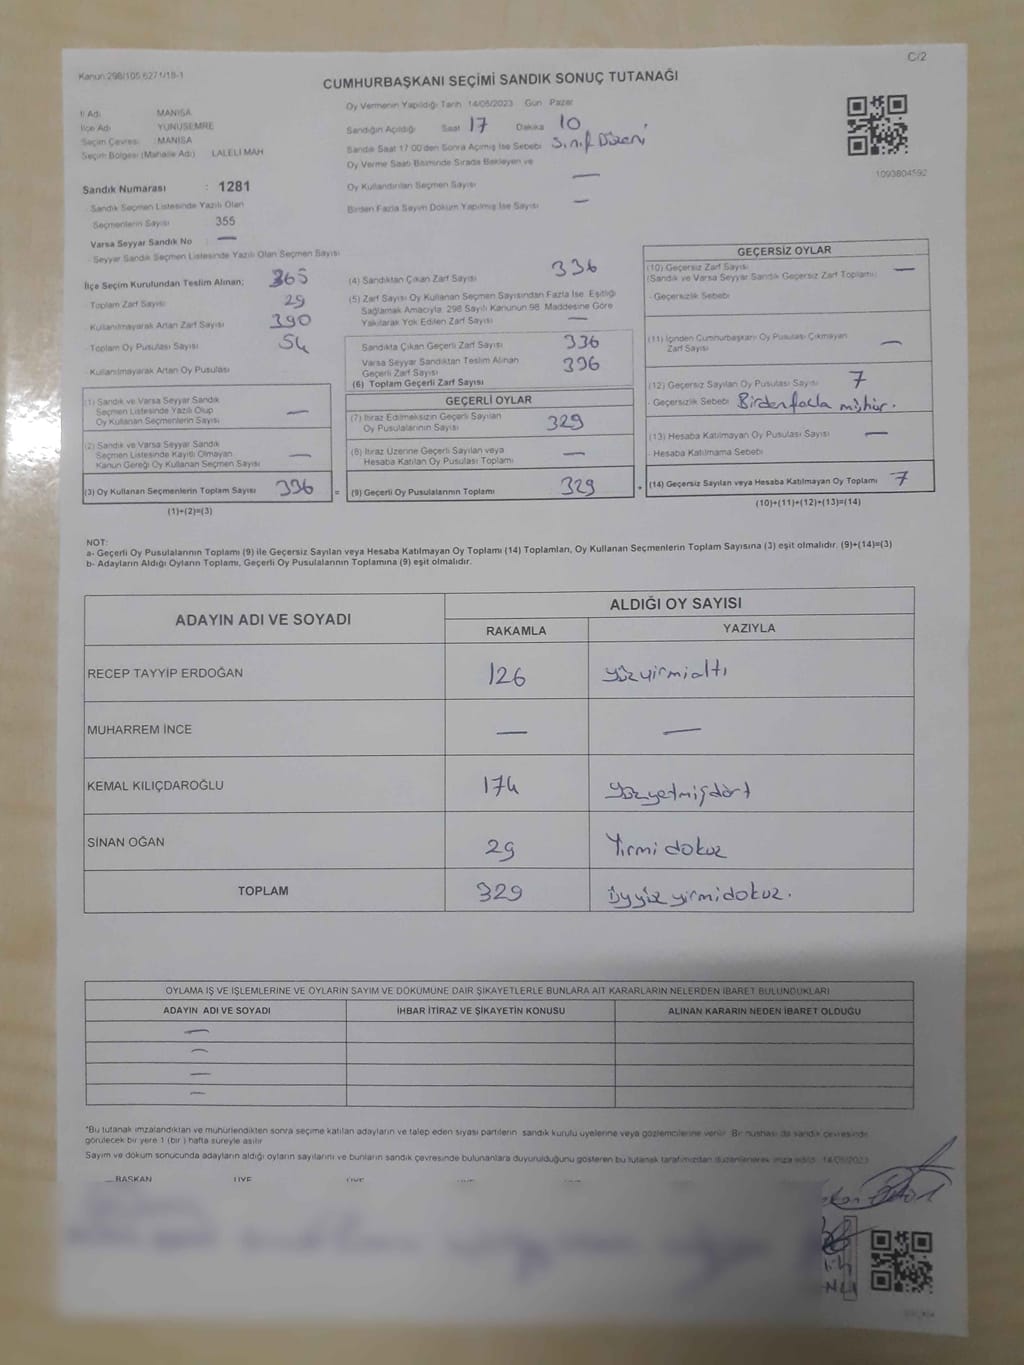 C/2
Kanun:298/105,6271/18-1
CUMHURBAŞKANI SEÇİMİ SANDIK SONUÇ TUTANAĞI
İl Adı : MANİSA
İlçe Adı : YUNUSEMRE
Seçim Çevresi : MANİSA
Seçim Bölgesi (Mahalle Adı) : LALELİ MAH
Sandık Numarası : 1281
Sandık Seçmen Listesinde Yazılı Olan
Seçmenlerin Sayısı 355
Varsa Seyyar Sandık No —
- Seyyar Sandık Seçmen Listesinde Yazılı Olan Seçmen Sayısı
Oy Vermenin Yapıldığı Tarih 14/05/2023 Gün Pazar
Sandığın Açıldığı Saat 17 Dakika 10
Sandık Saat 17:00'den Sonra Açılmış İse Sebebi Sınıf Düzeni
Oy Verme Saati Bitiminde Sırada Bekleyen ve
Oy Kullandırılan Seçmen Sayısı —
Birden Fazla Sayım Döküm Yapılmış İse Sayısı —
1093804592
İlçe Seçim Kurulundan Teslim Alınan; 365
Toplam Zarf Sayısı 29
- Kullanılmayarak Artan Zarf Sayısı 390
- Toplam Oy Pusulası Sayısı 54
- Kullanılmayarak Artan Oy Pusulası
(1) Sandık ve Varsa Seyyar Sandık
Seçmen Listesinde Yazılı Olup
Oy Kullanan Seçmenlerin Sayısı —
(2) Sandık ve Varsa Seyyar Sandık
Seçmen Listesinde Kayıtlı Olmayan
Kanun Gereği Oy Kullanan Seçmen Sayısı —
(3) Oy Kullanan Seçmenlerin Toplam Sayısı 336 =
(1)+(2)=(3)
(4) Sandıktan Çıkan Zarf Sayısı 336
(5) Zarf Sayısı Oy Kullanan Seçmen Sayısından Fazla İse, Eşitliği
Sağlamak Amacıyla, 298 Sayılı Kanunun 98. Maddesine Göre
Yakılarak Yok Edilen Zarf Sayısı —
Sandıkta Çıkan Geçerli Zarf Sayısı 336
Varsa Seyyar Sandıktan Teslim Alınan
Geçerli Zarf Sayısı 336
(6) Toplam Geçerli Zarf Sayısı
GEÇERLİ OYLAR
(7) İtiraz Edilmeksizin Geçerli Sayılan
Oy Pusulalarının Sayısı 329
(8) İtiraz Üzerine Geçerli Sayılan veya
Hesaba Katılan Oy Pusulası Toplamı —
(9) Geçerli Oy Pusulalarının Toplamı 329
GEÇERSİZ OYLAR
(10) Geçersiz Zarf Sayısı —
(Sandık ve Varsa Seyyar Sandık Geçersiz Zarf Toplamı)
- Geçersizlik Sebebi
(11) İçinden Cumhurbaşkanı Oy Pusulası Çıkmayan
Zarf Sayısı —
(12) Geçersiz Sayılan Oy Pusulası Sayısı 7
- Geçersizlik Sebebi Birden fazla mühür.
(13) Hesaba Katılmayan Oy Pusulası Sayısı —
- Hesaba Katılmama Sebebi
(14) Geçersiz Sayılan veya Hesaba Katılmayan Oy Toplamı 7
(10)+(11)+(12)+(13)=(14)
NOT:
a- Geçerli Oy Pusulalarının Toplamı (9) ile Geçersiz Sayılan veya Hesaba Katılmayan Oy Toplamı (14) Toplamları, Oy Kullanan Seçmenlerin Toplam Sayısına (3) eşit olmalıdır. (9)+(14)=(3)
b- Adayların Aldığı Oyların Toplamı, Geçerli Oy Pusulalarının Toplamına (9) eşit olmalıdır.
ADAYIN ADI VE SOYADI ALDIĞI OY SAYISI
RAKAMLA YAZIYLA
RECEP TAYYİP ERDOĞAN 126 yüzyirmialtı
MUHARREM İNCE — —
KEMAL KILIÇDAROĞLU 174 yüzyetmişdört
SİNAN OĞAN 29 Yirmi dokuz
TOPLAM 329 üçyüz yirmidokuz.
OYLAMA İŞ VE İŞLEMLERİNE VE OYLARIN SAYIM VE DÖKÜMÜNE DAİR ŞİKAYETLERLE BUNLARA AİT KARARLARIN NELERDEN İBARET BULUNDUKLARI
ADAYIN ADI VE SOYADI İHBAR İTİRAZ VE ŞİKAYETİN KONUSU ALINAN KARARIN NEDEN İBARET OLDUĞU
—
—
—
—
*Bu tutanak imzalandıktan ve mühürlendikten sonra seçime katılan adayların ve talep eden siyasi partilerin sandık kurulu üyelerine veya gözlemcilerine verilir. Bir nüshası da sandık çevresinde
görülecek bir yere 1 (bir ) hafta süreyle asılır
Sayım ve döküm sonucunda adayların aldığı oyların sayılarını ve bunların sandık çevresinde bulunanlara duyurulduğunu gösteren bu tutanak tarafımızdan düzenlenerek imza edildi. 14/05/2023
BAŞKAN ÜYE ÜYE